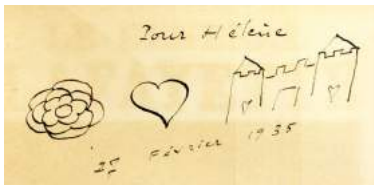 Pour Hélène
25 Février 1935